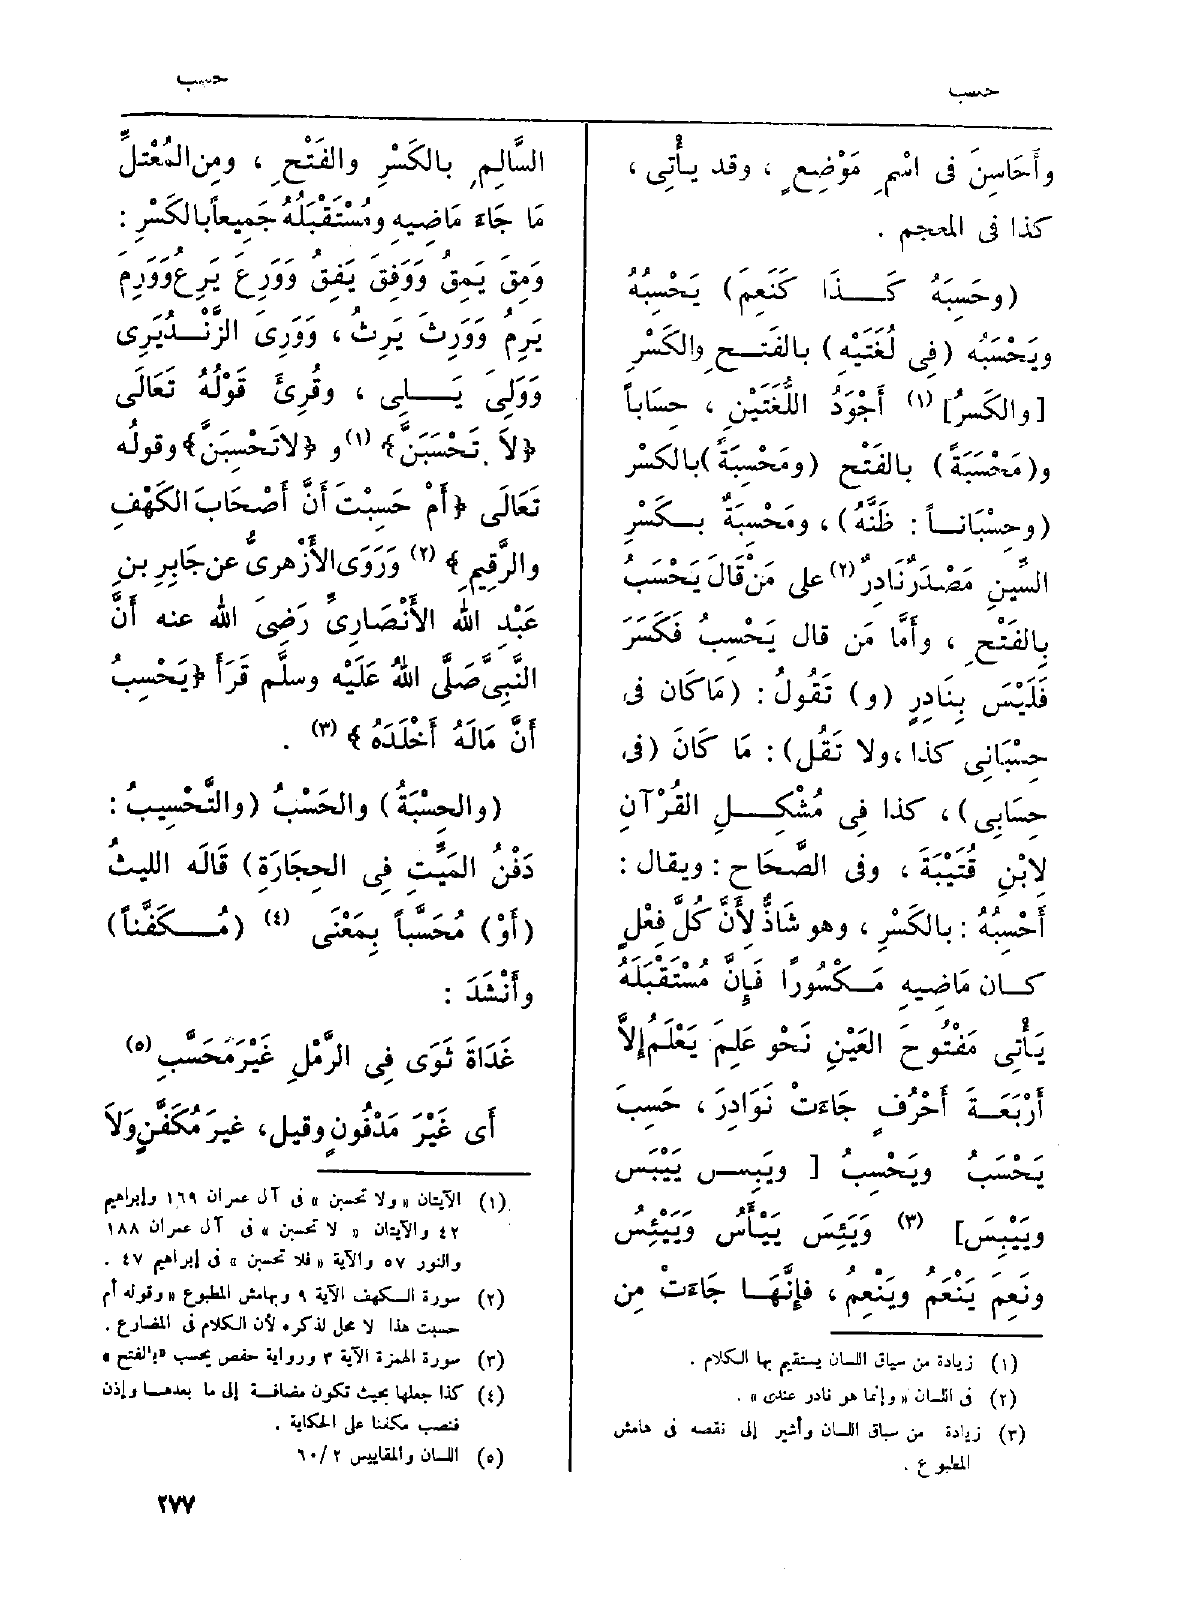 حسب
حسب
وأَحَاسِنَ فى اسْمِ مَوْضِعٍ ، وقد يأْتِى ،
كذا فى المعجم .
(وحَسِبَهُ كَـــذَا كَنَعِمَ) يَحْسِبُهُ
ويَحْسَبُه (فِى لُغَتَيْهِ) بالفَتــحِ والكَسْرِ
[والكَسرُ] (١) أَجْوَدُ اللُّغَتَيْنِ ، حِسَاباً
و(مَحْسَبَةً) بالفَتْح (ومَحْسِبَةً) بالكَسْر
(وحِسْبَانــاً : ظَنَّهُ) ، ومَحْسِبَةٌ بـكَسْرِ
السِّينِ مَصْدَرٌ نَادِرٌ (٢) على مَنْ قَالَ يَحْسَبُ
بِالفَتْحِ ، وأَمَّا مَن قال يَحْسِبُ فَكَسَرَ
فَلَيْسَ بِنَادِرٍ (و) تَقُولُ : (مَا كان فى
حِسْبَانِى كذا ، ولا تَقُل) : مَا كَانَ (فى
حِسَابِى) ، كذا فِى مُشْكِـــلِ القُرْآنِ
لِابْنِ قُتَيْبَةَ ، وفى الصَّحَاح : ويقال :
أَحْسِبُهُ : بالكَسْرِ ، وهو شَاذٌّ لِأَنَّ كُلَّ فِعْلٍ
كــان مَاضِيهِ مَـكْسُورًا فَإِنَّ مُسْتَقْبَلَهُ
يَأْتِى مَفْتُوحَ العَيْنِ نَحْو عَلِمَ يَعْلَمُ إِلاَّ
أَرْبَعَــةَ أَحْرُفٍ جَاءَتْ نَوَادِرَ ، حَسِبَ
يَحْسَبُ ويَحْسِبُ [ ويَبِــس يَيْبَس
ويَيْبِس] (٣) وَيَئِسَ يَيْأَسُ وَيَيْئِسُ
ونَعِمَ يَنْعَمُ ويَنْعِمُ ، فإِنَّهَــا جَاءَتْ مِن
(١) زيادة من سياق اللسان يستقيم بها الكلام .
(٢) فى اللسان « وإنما هو نادر عندى » .
(٣) زيادة من سياق اللسان وأشير إلى نقصه فى هامش
المطبوع .
السَّالِمِ بالكَسْرِ والفَتْحِ ، ومِن المُعْتَلِّ
مَا جَاءَ مَاضِيهِ ومُسْتَقْبَلُهُ جَمِيعاً بالكَسْرِ :
وَمِقَ يَمِقُ وَوَفِقَ يَفِقُ وَوَرِعَ يَرِعُ وَوَرِمَ
يَرِمُ وَوَرِثَ يَرِثُ ، وَوَرِىَ الزَّنْــدُ يَرِى
وَوَلِىَ يَـــلِى ، وقُرِئَ قَوْلُهُ تَعَالَى
﴿لاَ تَحْسَبَنَّ﴾ (١) و ﴿لاتَحْسِبَنَّ﴾ وقولُه
تَعَالَى ﴿أَمْ حَسِبْتَ أَنَّ أَصْحَابَ الكَهْفِ
والرَّقِيمِ﴾ (٢) وَرَوَى الأَزْهرىُّ عن جَابِرِ بنِ
عَبْدِ الله الأَنْصَارِىِّ رَضِىَ الله عنه أَنَّ
النَّبِىَّ صَلَّى اللهُ عَلَيْه وسلَّم قَرَأَ ﴿يَحْسِبُ
أَنَّ مَالَهُ أَخْلَدَهُ﴾ (٣) .
(والحِسْبَةُ) والحَسْبُ (والتَّحْسِيبُ :
دَفْنُ المَيِّتِ فِى الحِجَارَةِ) قَالَه الليثُ
(أَوْ) مُحَسَّباً بِمَعْنَى (٤) (مُــكَفَّناً)
وأَنْشَدَ :
غَدَاةَ ثَوَى فِى الرَّمْلِ غَيْرَ مُحَسَّبِ (٥)
أَى غَيْرَ مَدْفُونٍ وقيل ، غيرَ مُكَفَّنٍ ولَا
(١) الآيتان « ولا تحسبن » فى آل عمران ١٦٩ وإبراهيم
٤٢ والآيتان « لا تحسبن » فى آل عمران ١٨٨
والنور ٥٧ والآية « فلا تحسبن » فى إبراهيم ٤٧ .
(٢) سورة الـكهف الآية ٩ وبهامش المطبوع « وقوله أم
حسبت هذا لا محل لذكره لأن الكلام فى المضارع .
(٣) سورة الهمزة الآية ٣ ورواية حفص يحسب «بالفتح »
(٤) كذا جعلها بحيث تكون مضافـة إلى ما بعدهـا وإذن
فنصب مكفنا على الحكاية .
(٥) اللسان والمقاييس ٢ /٦٠
٢٧٧